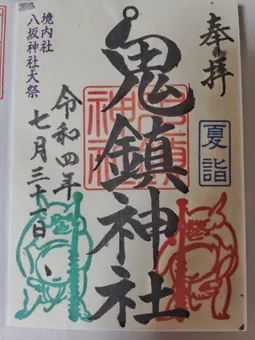 奉拝
夏詣
鬼鎮神社
令和四年
七月三十一日
境内社
八坂神社大祭